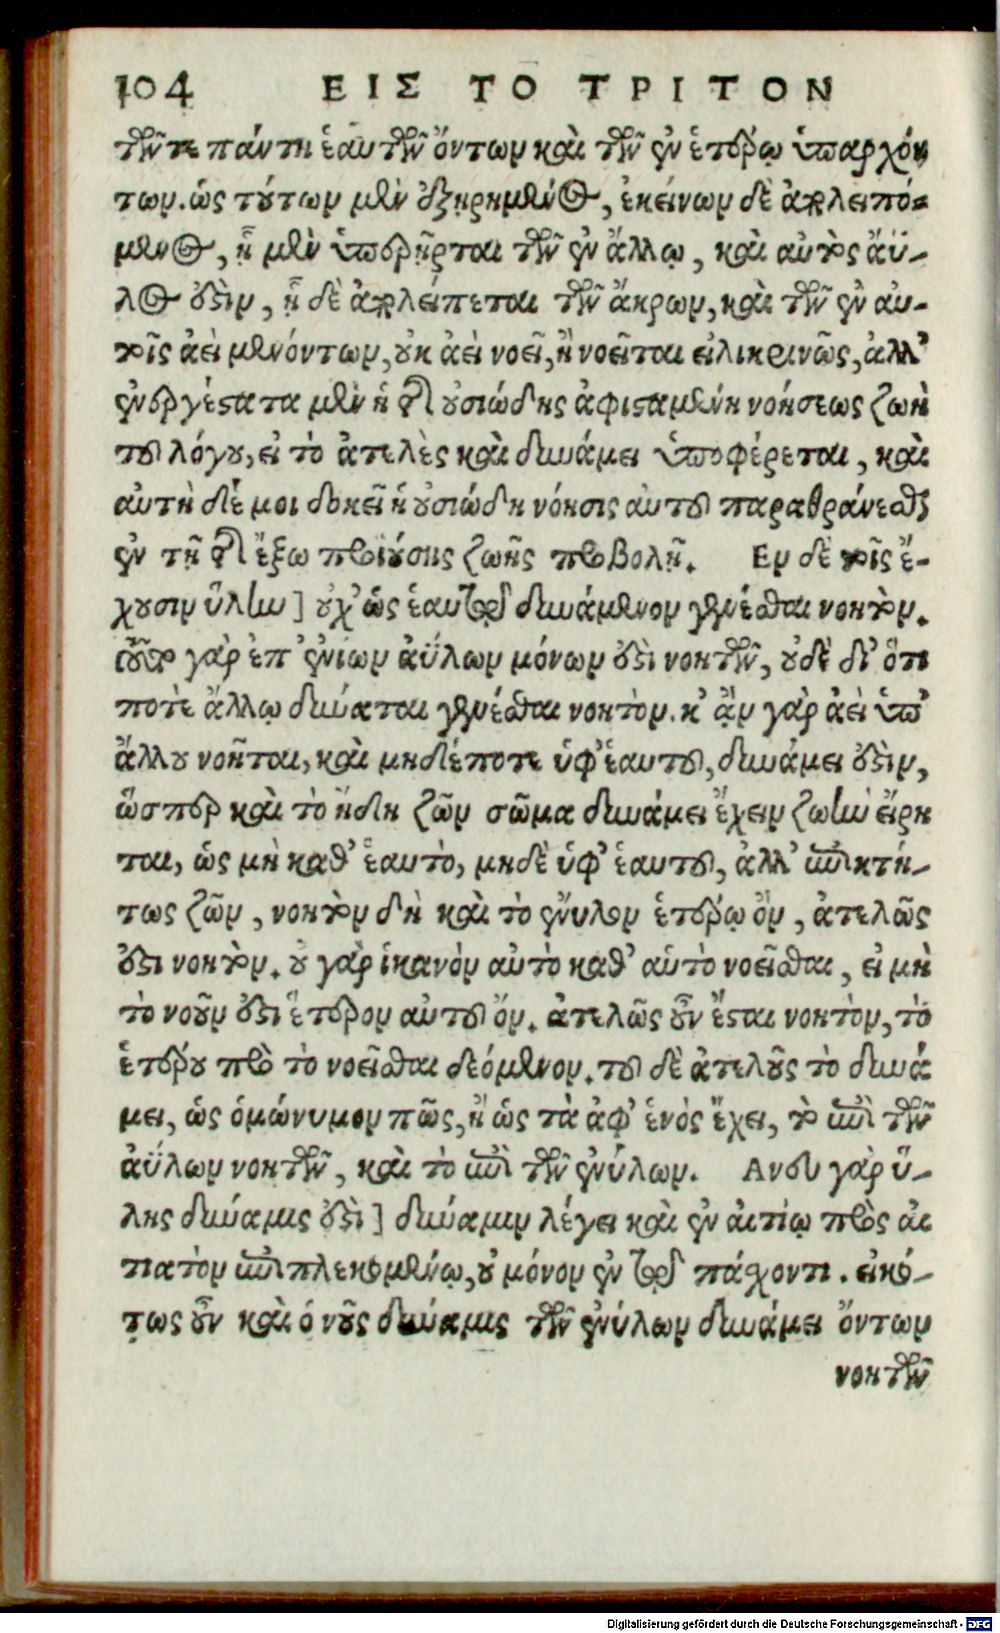 104 ΕΙΣ ΤΟ ΤΡΙΤΟΝ
τῶν τε πάντη ἑαυτῶν ὄντων καὶ τῶν ἐν ἑτέρῳ ὑπαρχόν
των. ὡς τούτων μὲν ἐξῃρημένος, ἐκείνων δὲ ἀπολειπό-
μενος, ᾗ μὲν ὑπερῆρται τῶν ἐν ἄλλῳ, καὶ αὐτὸς ἄϋ-
λος ἐστὶν, ᾗ δὲ ἀπολείπεται τῶν ἄκρων, καὶ τῶν ἐν αυ-
τοῖς ἀεὶ μενόντων, οὐκ ἀεὶ νοεῖ, ἢ νοεῖται εἰλικρινῶς, ἀλλ’
ἐνεργέστατα μὲν ἡ τῆς οὐσιώδης ἀφισταμένη νοήσεως ζωὴ
τοῦ λόγου, εἰ τὸ ἀτελὲς καὶ δυνάμει ὑποφέρεται, καὶ
αὐτὴ δέ μοι δοκεῖ ἡ οὐσιώδη νόησις αὐτοῦ παραθράνεσθαι
ἐν τῇ τῆς ἔξω προϊούσης ζωῆς προβολῇ. Εν δὲ τοῖς ἔ-
χουσιν ὕλην] οὐχ’ ὡς ἑαυτῷ δυνάμενον γενέσθαι νοητόν.
τοῦτο γὰρ ἐπ’ ἐνίων ἀΰλων μόνων ἐστὶ νοητῶν, οὐδὲ δι’ ὅτι
ποτὲ ἄλλῳ δύναται γενέσθαι νοητὸν. κ’ ἂν γὰρ ἀεὶ ὑπ’
ἄλλου νοῆται, καὶ μηδέποτε ὑφ’ ἑαυτοῦ, δυνάμει ἐστὶν,
ὥσπερ καὶ τὸ ἤδη ζῶν σῶμα δυνάμει ἔχειν ζωὴν εἴρη
ται, ὡς μὴ καθ’ ἑαυτὸ, μηδὲ ὑφ’ ἑαυτοῦ, ἀλλ’ ἐπικτή-
τως ζῶν, νοητὸν δὴ καὶ τὸ ἔνυλον ἑτέρῳ ὂν, ἀτελῶς
ἐστι νοητὸν. οὐ γὰρ ἱκανὸν αὐτὸ καθ’ αὑτὸ νοεῖσθαι, εἰ μὴ
τὸ νοοῦν ἐστι ἕτερον αὐτοῦ ὄν. ἀτελῶς οὖν ἔσται νοητὸν, τὸ
ἑτέρου πρὸ τὸ νοεῖσθαι δεόμενον. τοῦ δὲ ἀτελοῦς τὸ δυνά
μει, ὡς ὁμώνυμον πῶς, ἢ ὡς τὰ ἀφ’ ἑνὸς ἔχει, τὸ ἐπὶ τῶν
ἀΰλων νοητῶν, καὶ τὸ ἐπὶ τῶν ἐνύλων. Ανευ γὰρ ὕ-
λης δύναμις ἐστὶ] δύναμιν λέγει καὶ ἐν αἰτίῳ πρὸς αἰ
τιατὸν ἐπιπλεκομένῳ, οὐ μόνον ἐν τῷ πάχοντι. εἰκό-
τως οὖν καὶ ὁ νοῦς δύναμις τῶν ἐνύλων δυνάμει ὄντων
νοητῶν
Digitalisierung gefördert durch die Deutsche Forschungsgemeinschaft - DFG